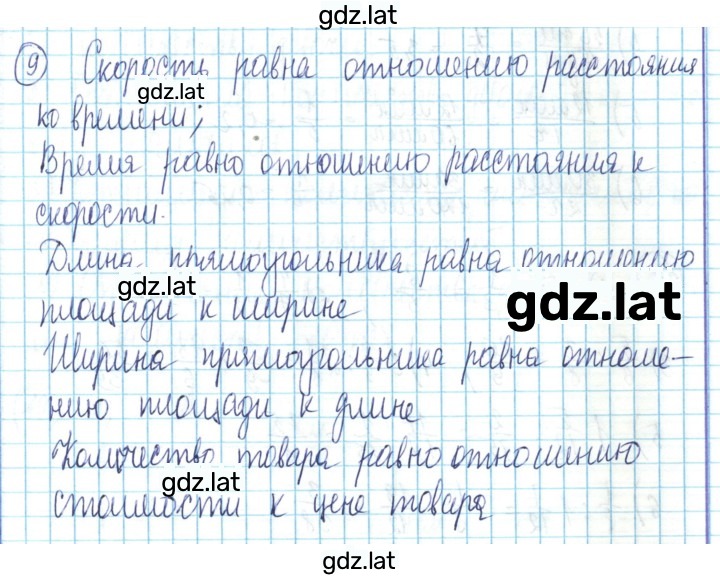 gdz.lat
9 Скорость равна отношению расстояния
gdz.lat
ко времени;
Время равно отношению расстояния к
gdz.lat
скорости.
Длина прямоугольника равна отношению
gdz.lat
площади к ширине
gdz.lat
Ширина прямоугольника равна отноше-
нию площади к длине
Количество товара равно отношению
gdz.lat
стоимости к цене товара
gdz.lat